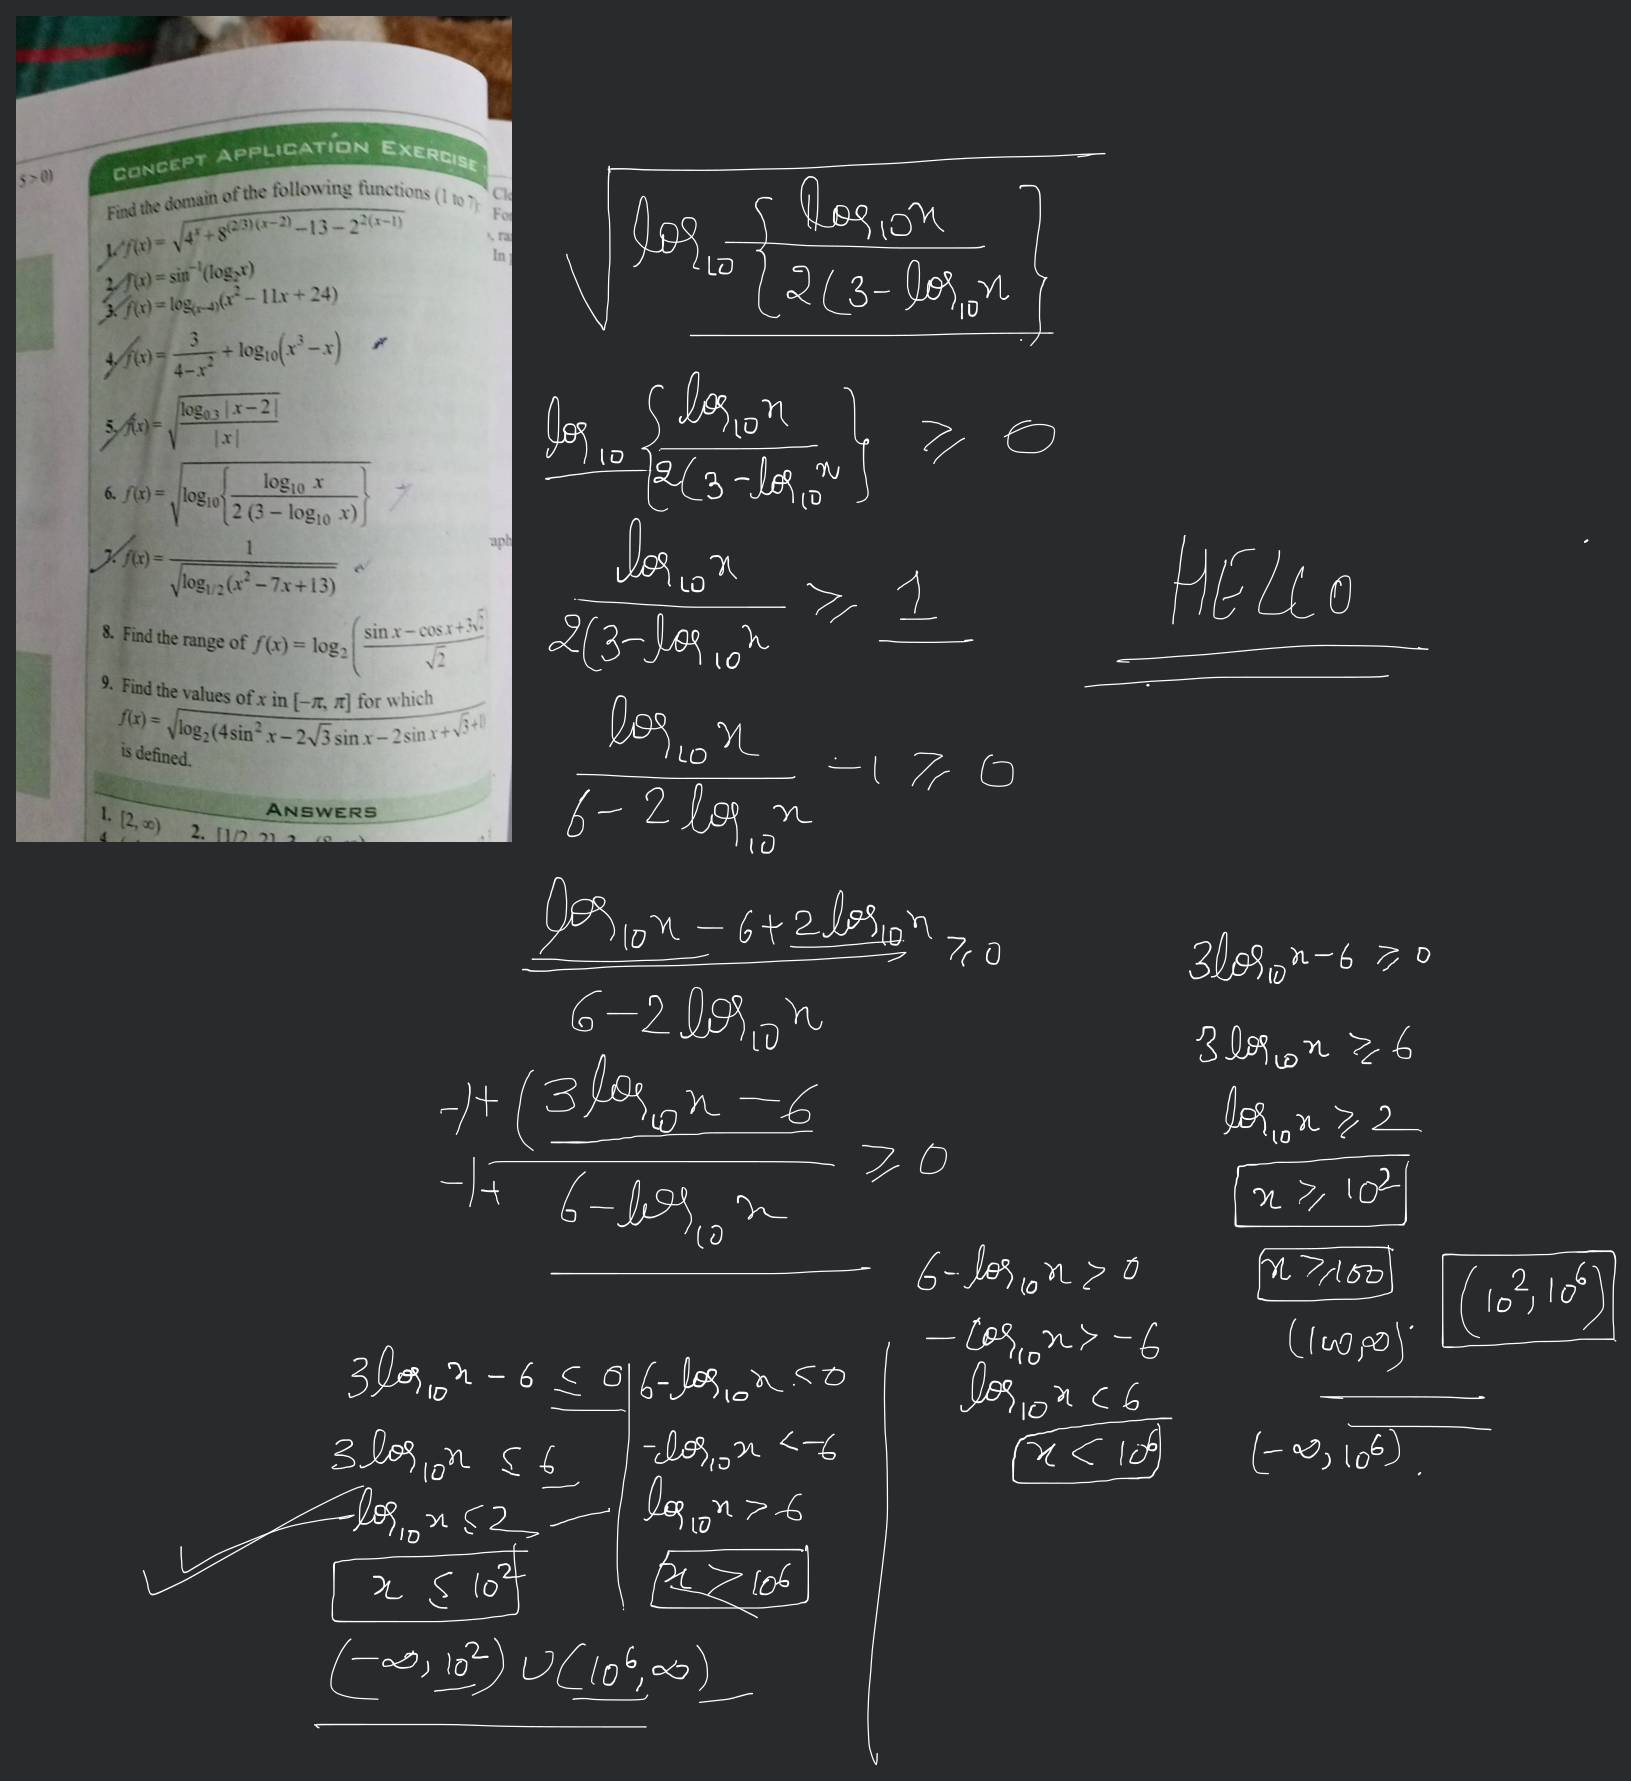 5>0)
CONCEPT APPLICATION EXERCISE
Find the domain of the following functions (1 to 7):
1. f(x) = √(4^x + 8^((2/3)(x−2)) − 13 − 2^(2(x−1)))
2. f(x) = sin⁻¹(log₂x)
3. f(x) = log₍ₓ₋₄₎(x² − 11x + 24)
4. f(x) = 3/(4−x²) + log₁₀(x³ − x)
5. f(x) = √(log₀.₃|x−2| / |x|)
6. f(x) = √(log₁₀{log₁₀ x / 2(3 − log₁₀ x)})
7. f(x) = 1/√(log₁/₂(x² − 7x + 13))
8. Find the range of f(x) = log₂((sin x − cos x + 3√2)/√2
9. Find the values of x in [−π, π] for which
f(x) = √(log₂(4sin² x − 2√3 sin x − 2 sin x + √3 + 1)
is defined.
ANSWERS
1. [2, ∞) 2. [1/2, 2]
aph
√(log₁₀{log₁₀x / 2(3−log₁₀x})
log₁₀{log₁₀x / 2(3−log₁₀x} ≥ 0
log₁₀x / 2(3−log₁₀x ≥ 1
HELLO
log₁₀x / 6−2log₁₀x −1 ≥ 0
log₁₀x − 6 + 2log₁₀x / 6−2log₁₀x ≥ 0
-/+ (3log₁₀x − 6 / -/+ 6−log₁₀x ≥ 0
3log₁₀x − 6 ≤ 0
3log₁₀x ≤ 6
log₁₀x ≤ 2
x ≤ 10²
6−log₁₀x < 0
−log₁₀x < −6
log₁₀x > 6
x > 10⁶
(−∞, 10²) ∪ (10⁶, ∞)
6−log₁₀x > 0
−log₁₀x > −6
log₁₀x < 6
x < 10⁶
3log₁₀x−6 ≥ 0
3log₁₀x ≥ 6
log₁₀x ≥ 2
x ≥ 10²
x ≥ 100
(100, ∞)
(−∞, 10⁶).
(10², 10⁶)